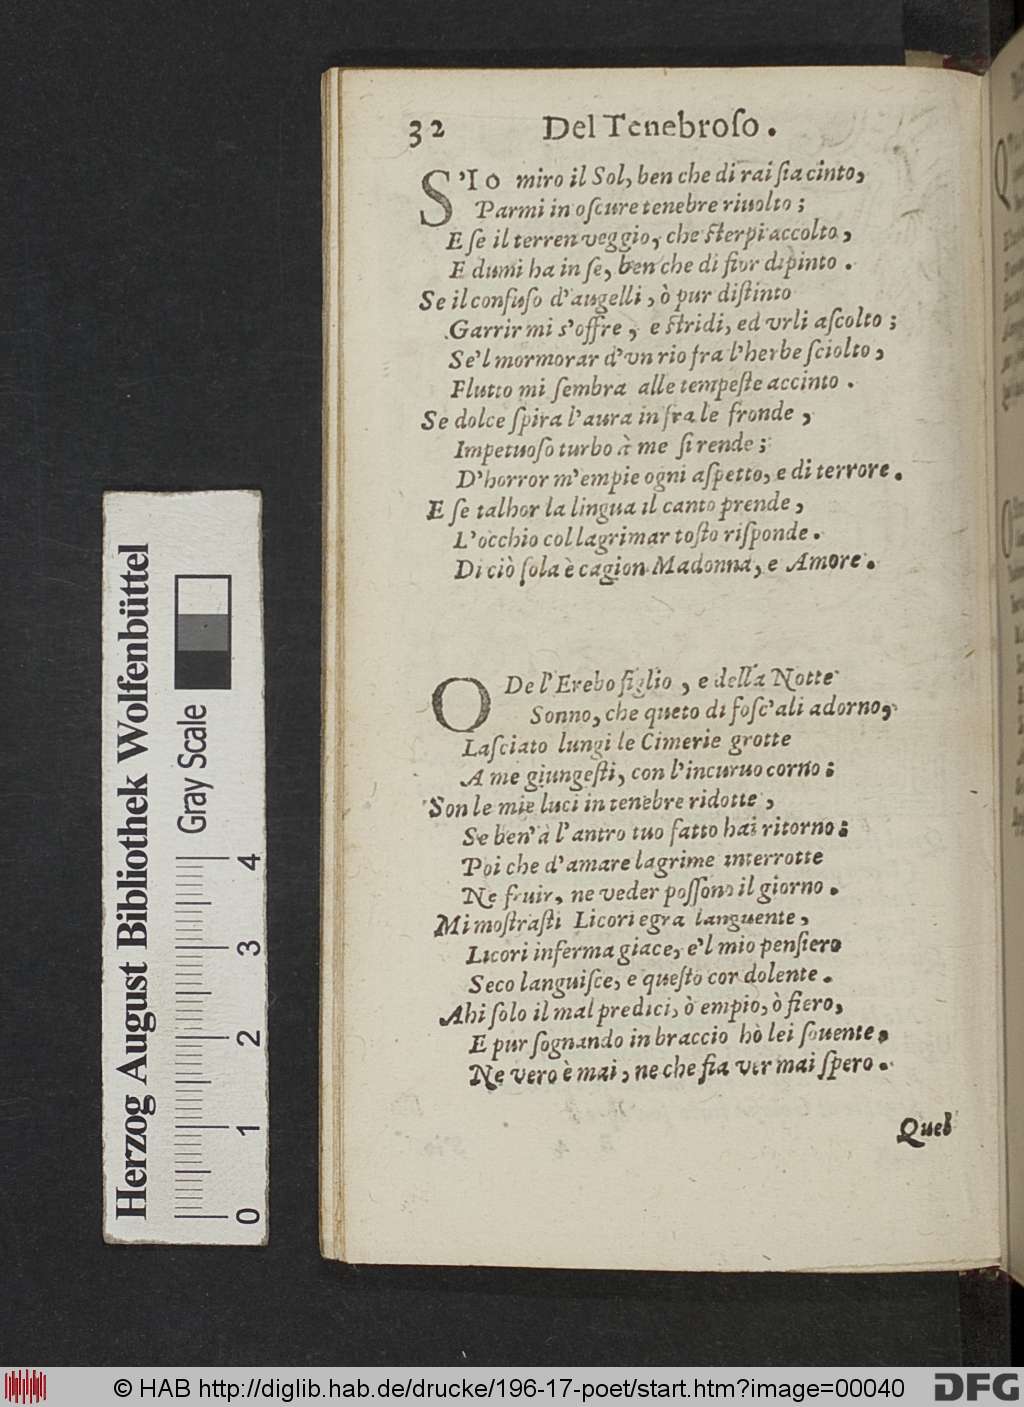 32 Del Tenebroſo.
S'Io miro il Sol, ben che di rai ſia cinto,
Parmi in oſcure tenebre riuolto;
E ſe il terren veggio, che ſterpi accolta,
E dumi ha in ſe, ben che di fior dipinto.
Se il confuſo d'augelli, ò pur diſtinto
Garrir mi s'offre, e ſtridi, ed vrli aſcolto;
Se'l mormorar d'vn rio fra l'herbe ſciolto,
Flutto mi ſembra alle tempeſte accinto.
Se dolce ſpira l'aura in fra le fronde,
Impetuoſo turbo à me ſi rende;
D'horror m'empie ogni aſpetto, e di terrore.
E ſe talhor la lingua il canto prende,
L'occhio col lagrimar toſto riſponde.
Di ciò ſola è cagion Madonna, e Amore.
O De l'Erebo figlio, e della Notte
Sonno, che queto di foſc'ali adorno,
Laſciato lungi le Cimerie grotte
A me giungeſti, con l'incuruo corno;
Son le mie luci in tenebre ridotte,
Se ben'à l'antro tuo fatto hai ritorno;
Poi che d'amare lagrime interrotte
Ne fruir, ne veder poſſono il giorno.
Mi moſtraſti Licori egra languente,
Licori inferma giace, e'l mio penſiero
Seco languiſce, e queſto cor dolente.
Ahi ſolo il mal predici, ò empio, ò fiero,
E pur ſognando in braccio hò lei ſouente,
Ne vero è mai, ne che fia ver mai ſpero.
Quel
Herzog August Bibliothek Wolfenbüttel
Gray Scale
0 1 2 3 4
© HAB http://diglib.hab.de/drucke/196-17-poet/start.htm?image=00040
DFG